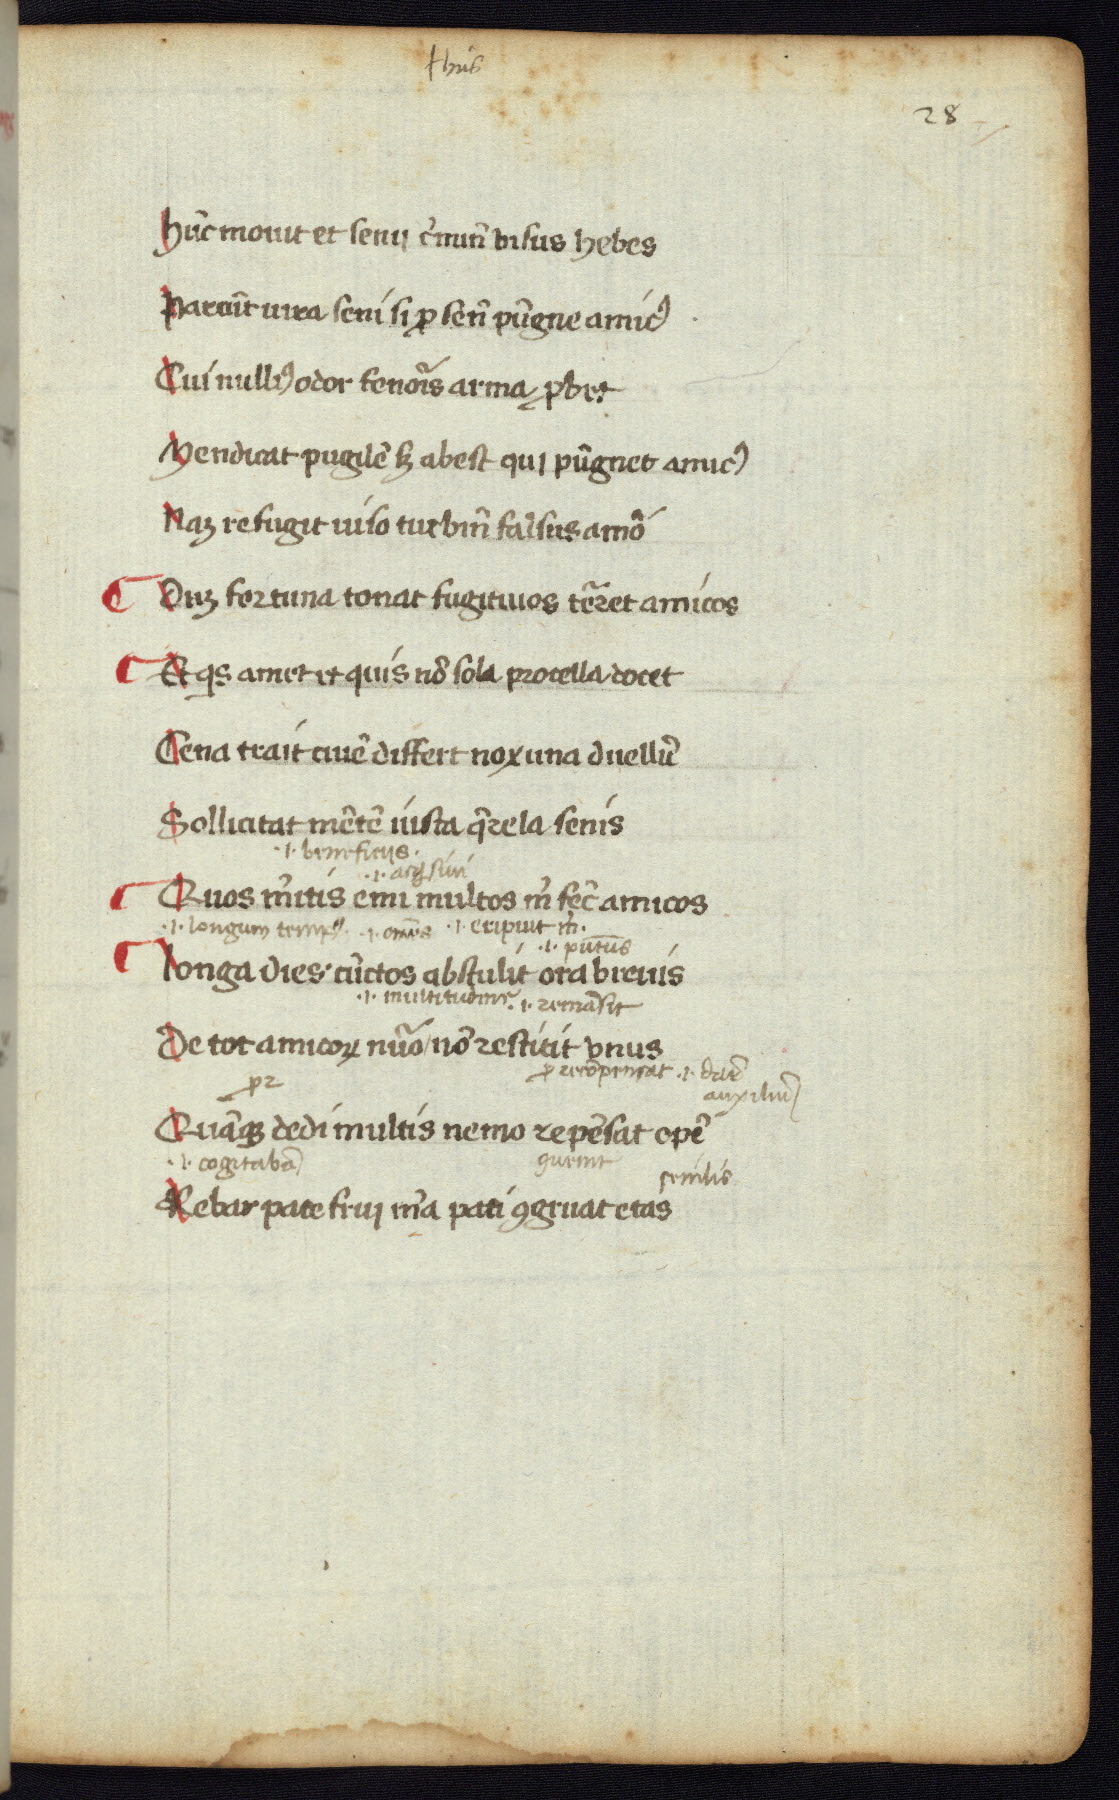 28
hūc mouit et senij c̄mīn̄ visus hebes
Parcit̄ iura seni si ꝓ sen̄ pūgne amicꝰ
Cui nullꝰ odor fenor̄is arma ꝓbet
Mendicat pugilē sꝫ abest qui pūgnet amicꝰ
Naꝫ refugit uiso turbin̄ falsus amor̄
Duꝫ fortuna tonat fugitiuos tēret amicos
Et qͥs amet et quis nō sola procella docet
Cena trait ciuē differt nox una duellū
Sollicitat mētē iusta q̄rela senis
.i. beneficijs.
Quos m̄itis emi multos m̄ fec̄ amicos
.i. longum tempꝰ .i. om̄es .i. eripuit m̄.
longa dies cūctos abstulit ora breuis
.i. multitudine .i. remāsit
De tot amicoꝝ nūo nō restitit vnus
ꝓ recōpensat .i. auxiliū
Quāqꝫ dedi multis nemo repēsat opē
.i. cogitabā senilis
Rebar pace frui m̄a pati ꝯgruat etas